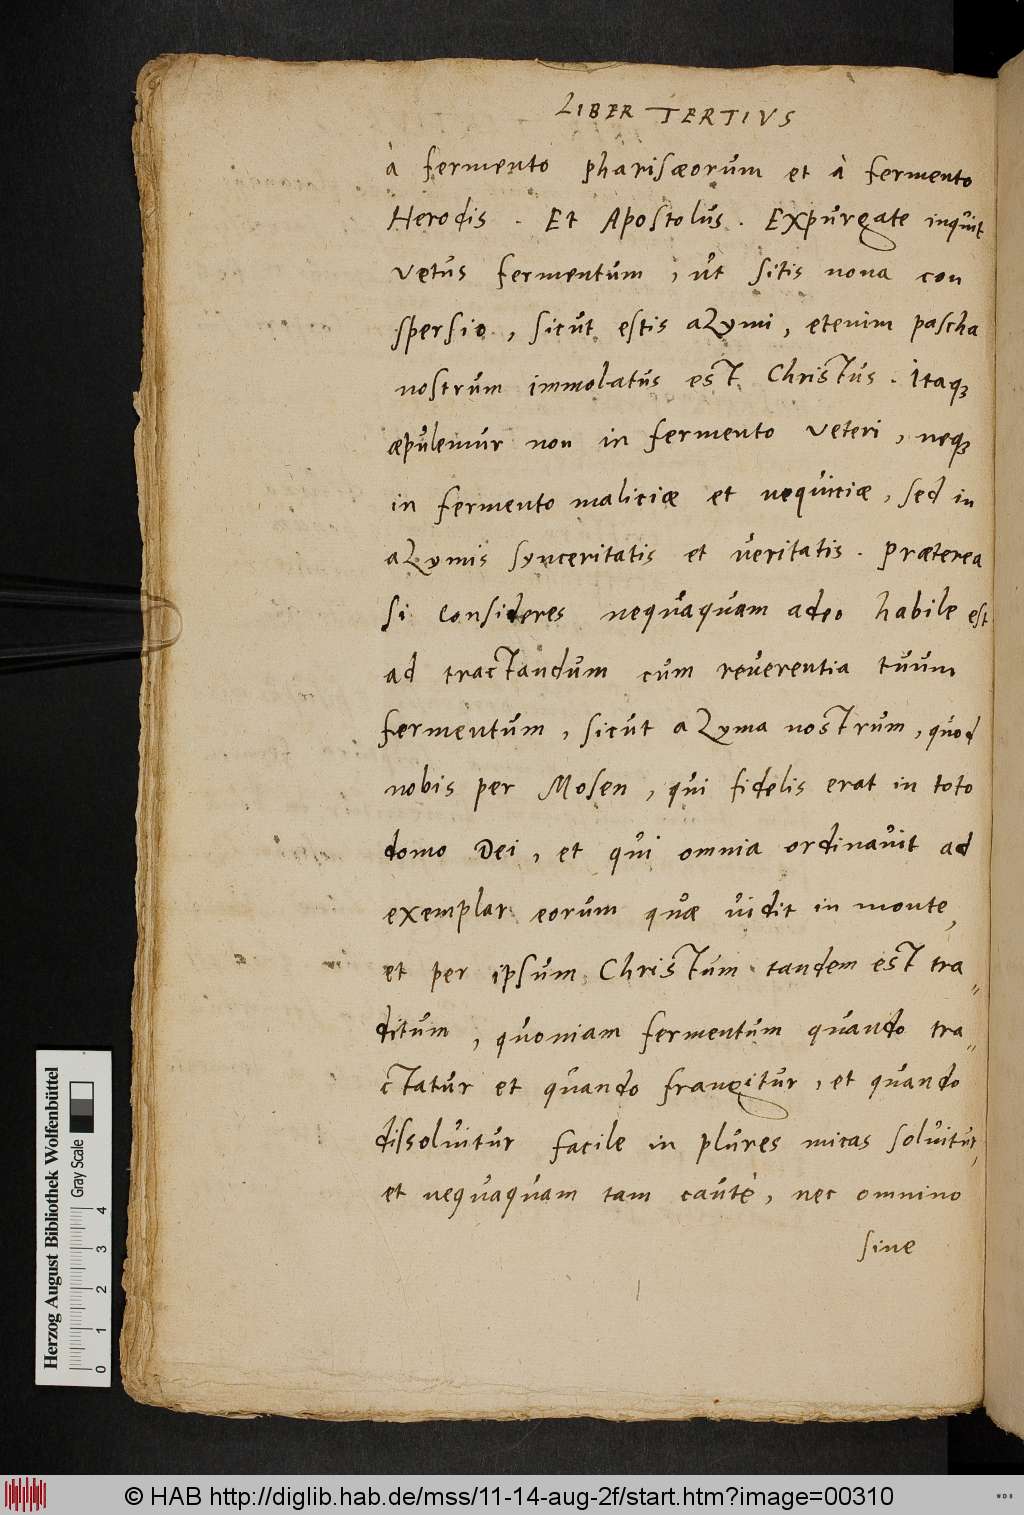 LIBER TERTIVS
à fermento pharisæorum et à fermento
Herodis . Et Apostolus . Expurgate inquit
vetus fermentum , ut sitis nova con
spersio , sicut estis azymi , etenim pascha
nostrum immolatus est Christus . Itaqꝫ
æpulemur non in fermento veteri , neqꝫ
in fermento maliciæ et nequiciæ , sed in
azymis synceritatis et veritatis . Præterea
si consideres nequaquam adeo habile est
ad tractandum cum reverentia tuum
fermentum , sicut azyma nostrum , quod
nobis per Mosen , qui fidelis erat in toto
domo Dei , et qui omnia ordinavit ad
exemplar eorum quæ vidit in monte,
et per ipsum Christum tandem est tra„
ditum , quoniam fermentum quando tra„
ctatur et quando frangitur , et quando
dissolvitur facile in plures micas solvitur,
et nequaquam tam cautè , nec omnino
sine
Herzog August Bibliothek Wolfenbüttel
Gray Scale
0 1 2 3 4
© HAB http://diglib.hab.de/mss/11-14-aug-2f/start.htm?image=00310